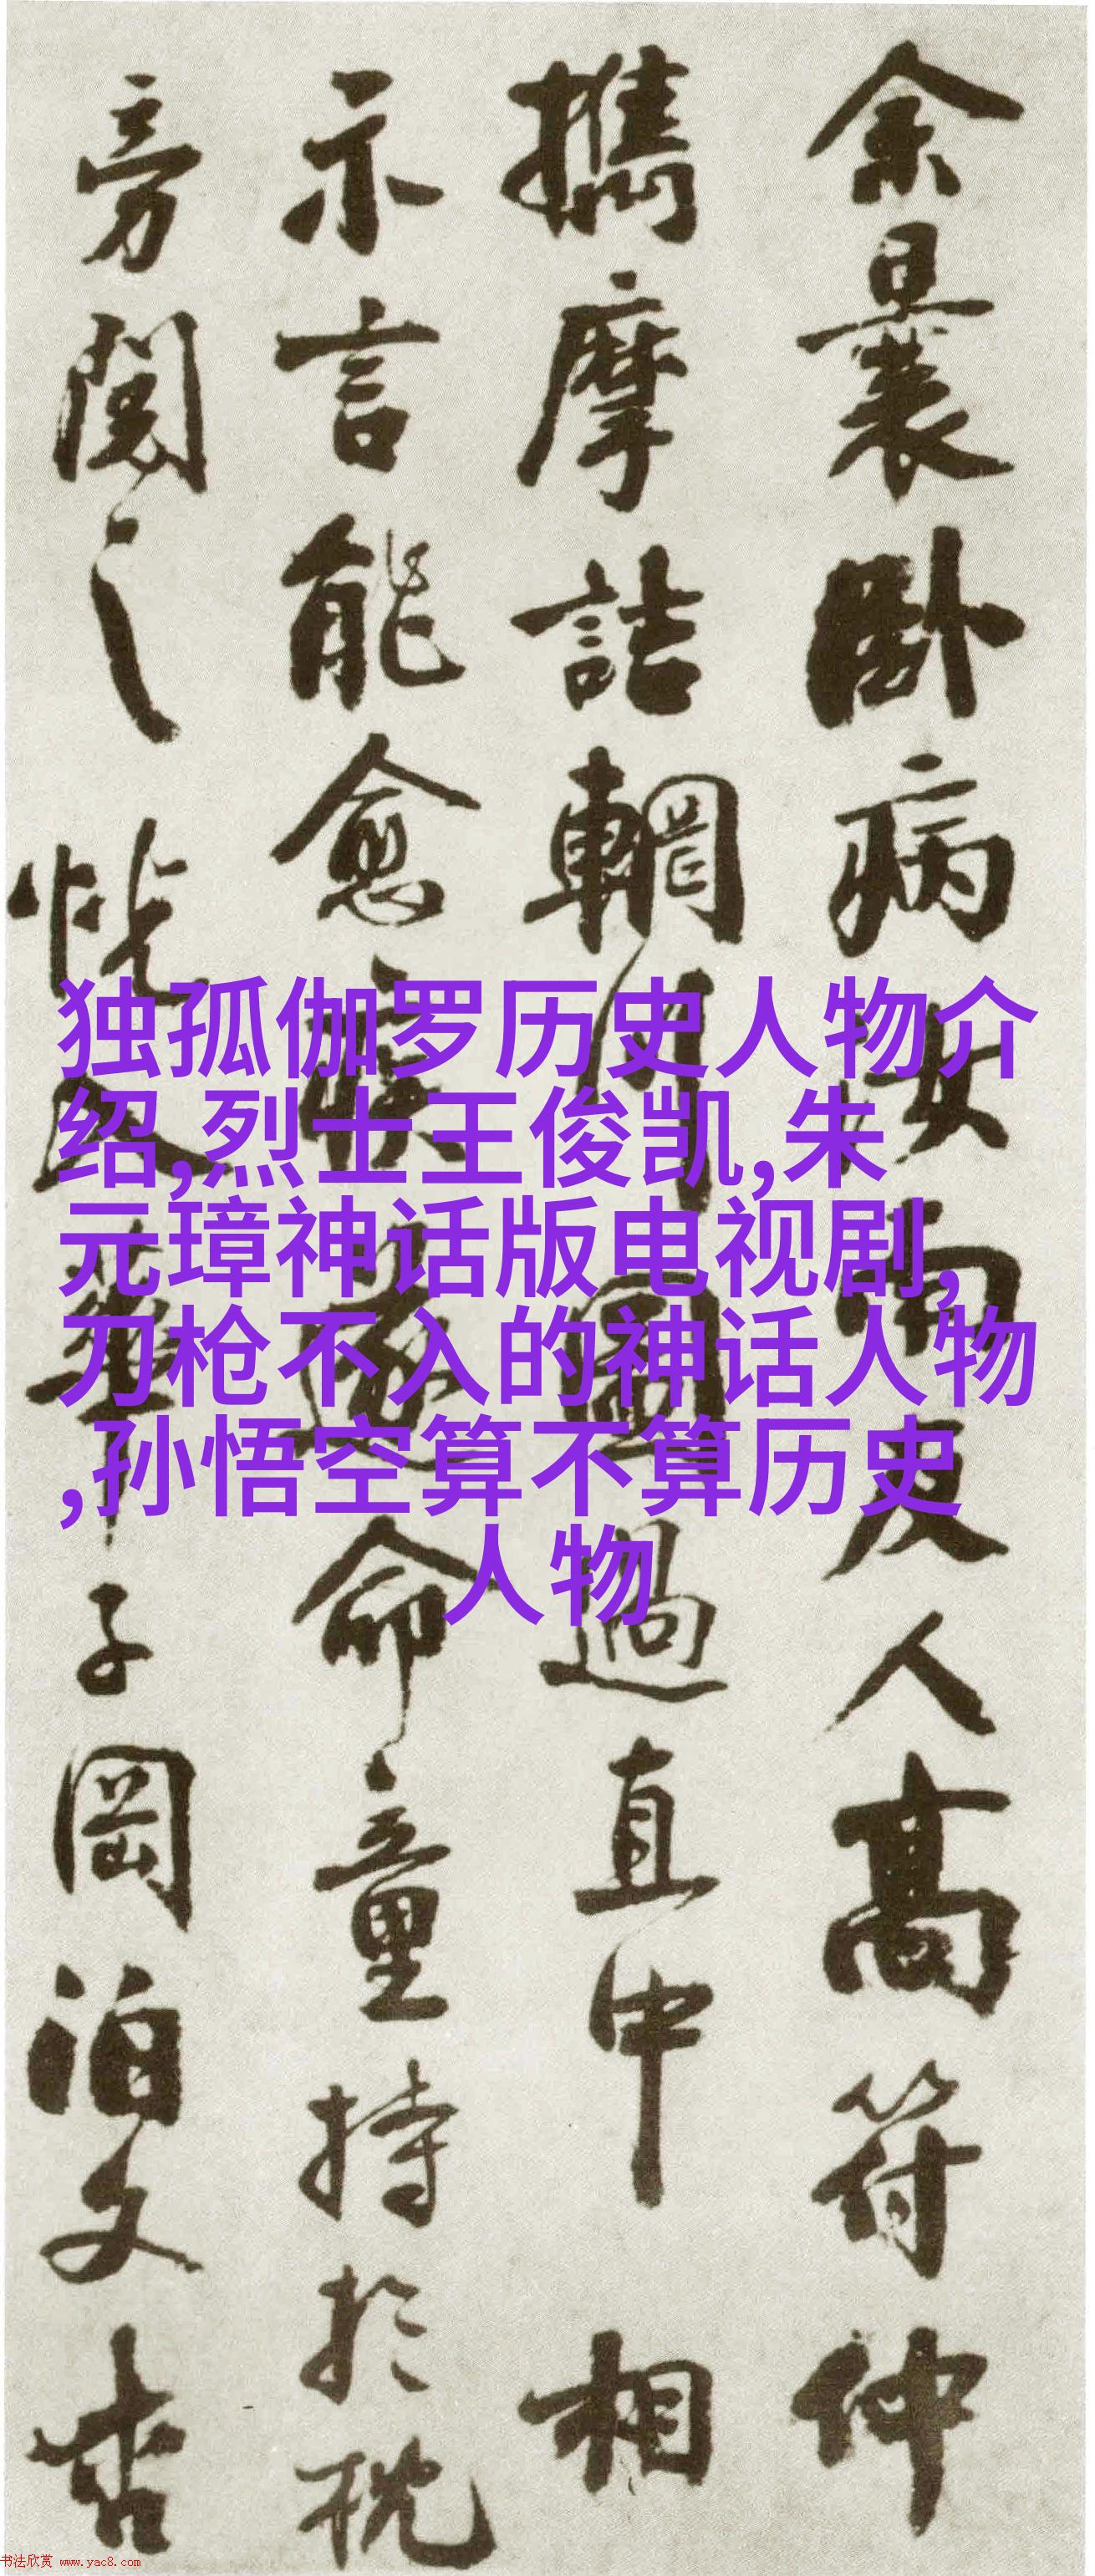 余曩卧病汝南友人高符仲
攜摩詰輞川圖過直中相
示言能愈疾遂命童持於枕
旁閱之恍入華子岡泊文杏
独孤伽罗历史人物介
绍,烈士王俊凯,朱
元璋神话版电视剧,
刀枪不入的神话人物
,孙悟空算不算历史
人物
书法欣赏 www.yac8.com